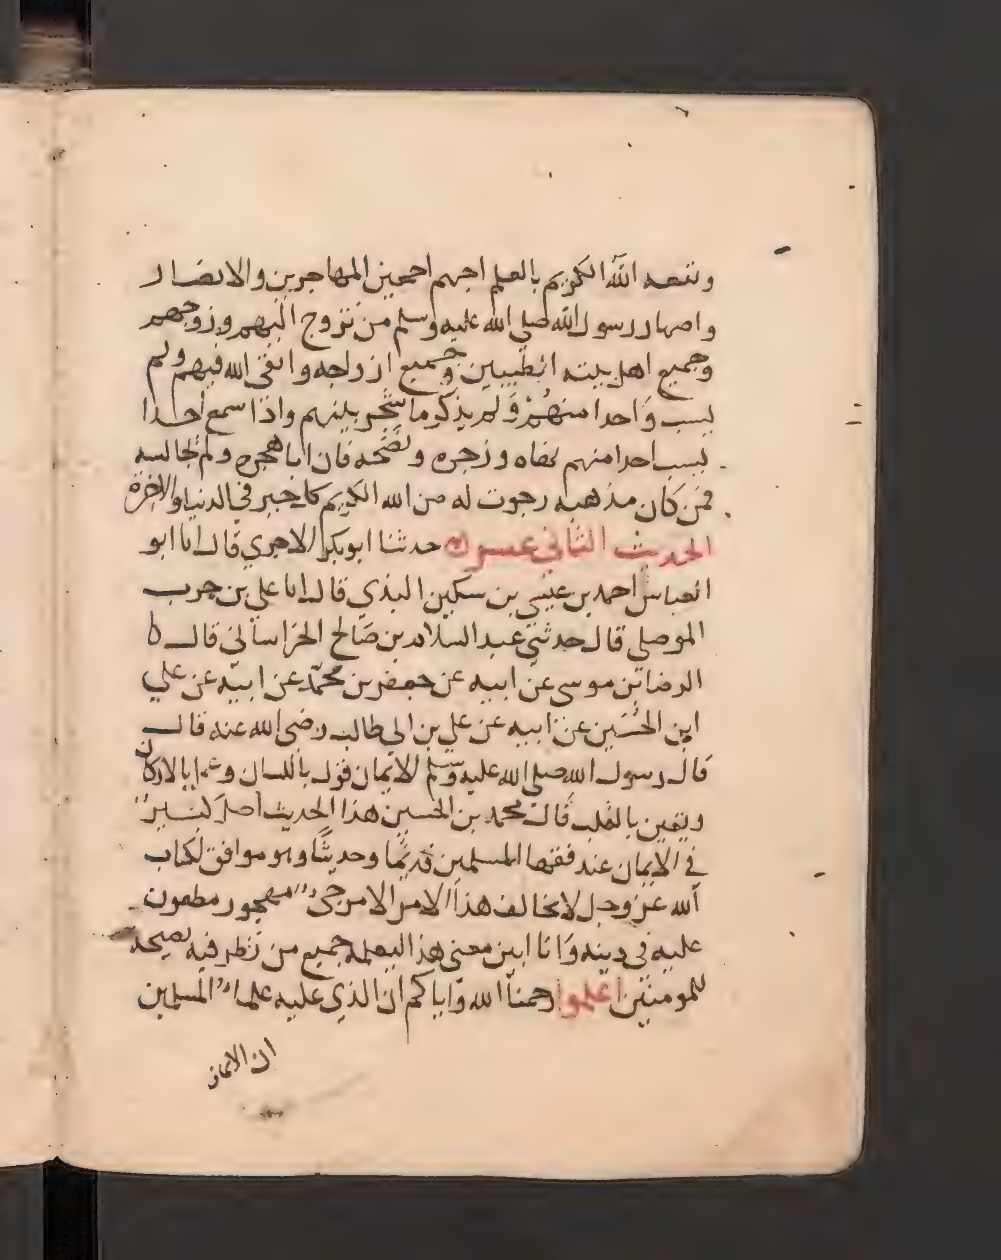 ونفعه الله الكريم بالعلم احبهم اجمعين المهاجرين والانصار
واصهار رسول الله صلي الله عليه وسلم من تزوج اليهم وزوجهم
وجميع اهل بيته الطيبين وجميع ازواجه واتقى الله فيهم ولم
يسب واحدا منهم ولم يذكر ما شجر بينهم واذا سمع احدا
يسب احدا منهم نهاه وزجره ونصحه فان ابا هجره ولم يجالسه
فمن كان مذهبه رجوت له من الله الكريم كل خير في الدنيا والاخرة
الحديث الثاني عسر حدثنا ابو بكر الاجري قال انا ابو
العباس احمد بن عيسى بن سكين البلدي قال انا علي بن حرب
الموصلي قال حدثني عبد السلام بن صالح الخراساني قال نا
الرضا بن موسى عن ابيه عن جعفر بن محمد عن ابيه عن علي
ابن الحسين عن ابيه عن علي بن ابي طالب رضي الله عنه قال
قال رسول الله صلي الله عليه وسلم الايمان قول باللسان وعمل بالاركان
ويقين بالقلب قال محمد بن الحسين هذا الحديث اصل كبير
في الايمان عند فقها المسلمين قديما وحديثا وهو موافق لكتاب
الله عز وجل لا يخالف هذا الامر الا مرجئ مهجور مطعون
عليه في دينه وانا ابين معنى هذا ليعلمه جميع من نظر فيه نصيحة
للمومنين اعلموا رحمنا الله واياكم ان الذي عليه علماء المسلمين
ان الايمان